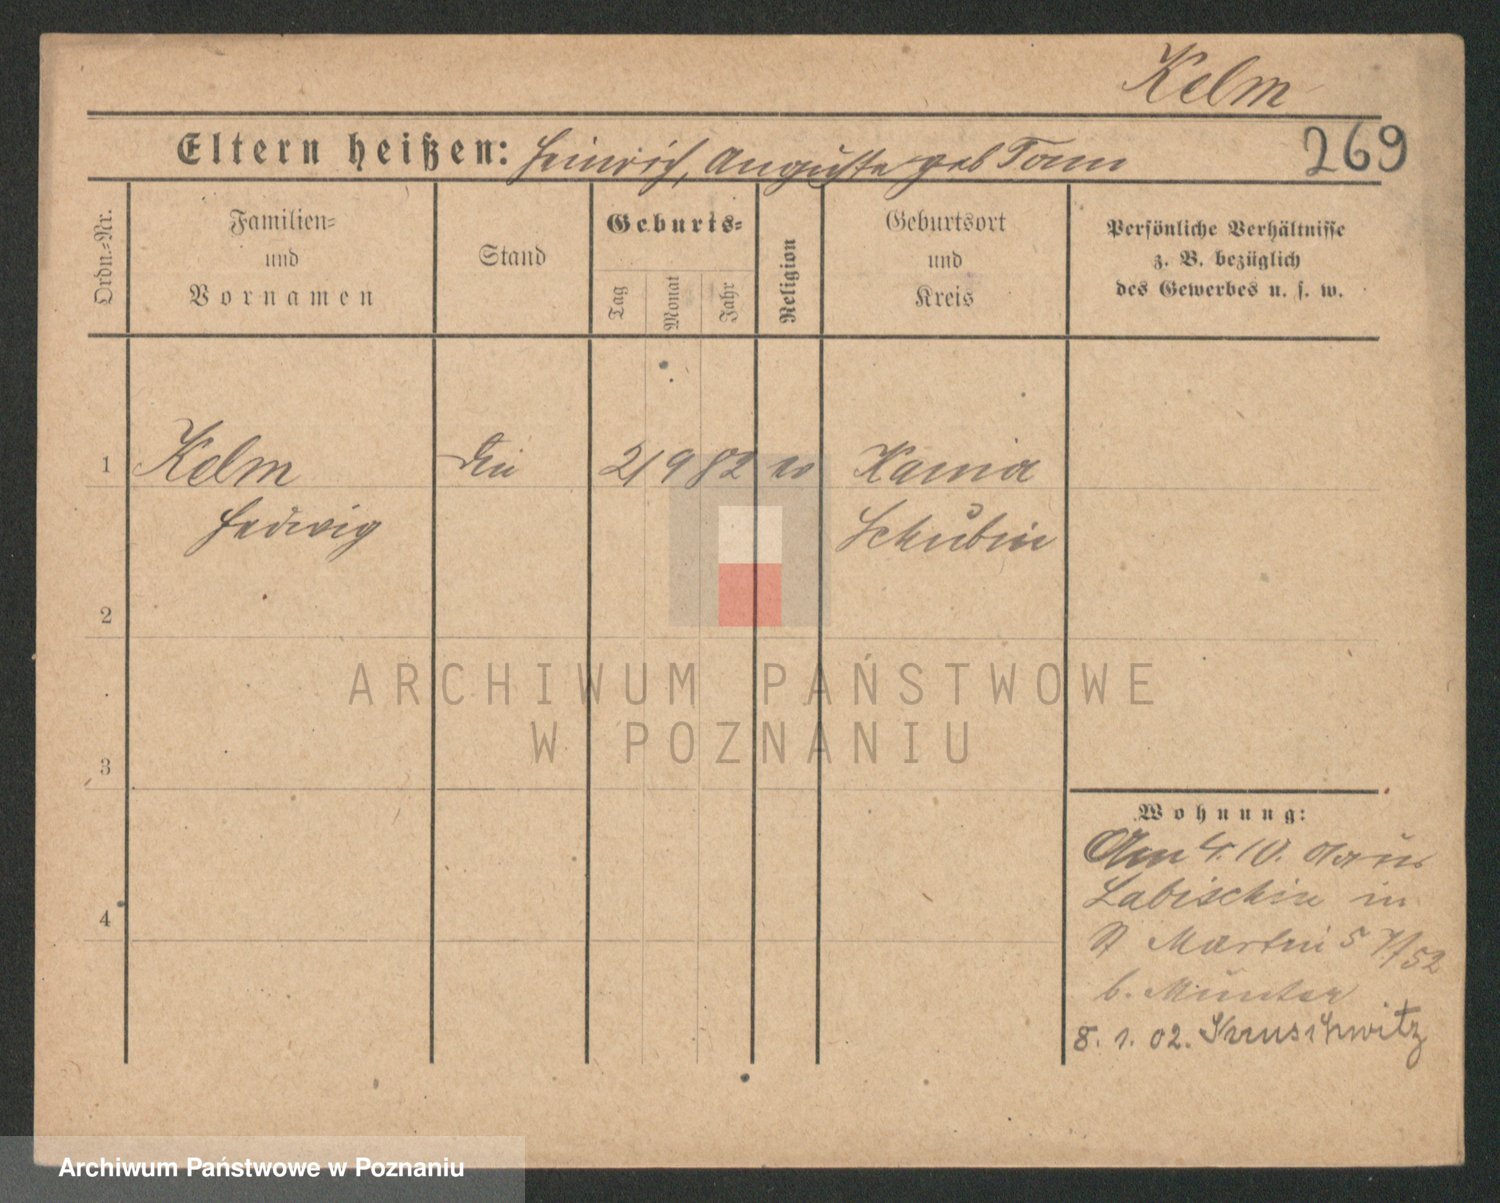 Kelm
269
Eltern heißen: Heinrich, Auguste geb Tonn
Ordn.-Nr.
Familien-
und
Vornamen
Stand
Geburts-
Tag
Monat
Jahr
Religion
Geburtsort
und
Kreis
Persönliche Verhältnisse
z. B. bezüglich
des Gewerbes u. s. w.
1 Kelm 21 9 82 ev
Hedwig Schubin
2
3
4
Wohnung:
Am 4. 10. aus
Labischin in
St Martin 5
b. Münter
8. 1. 02. Kruschwitz
ARCHIWUM PAŃSTWOWE
W POZNANIU
Archiwum Państwowe w Poznaniu